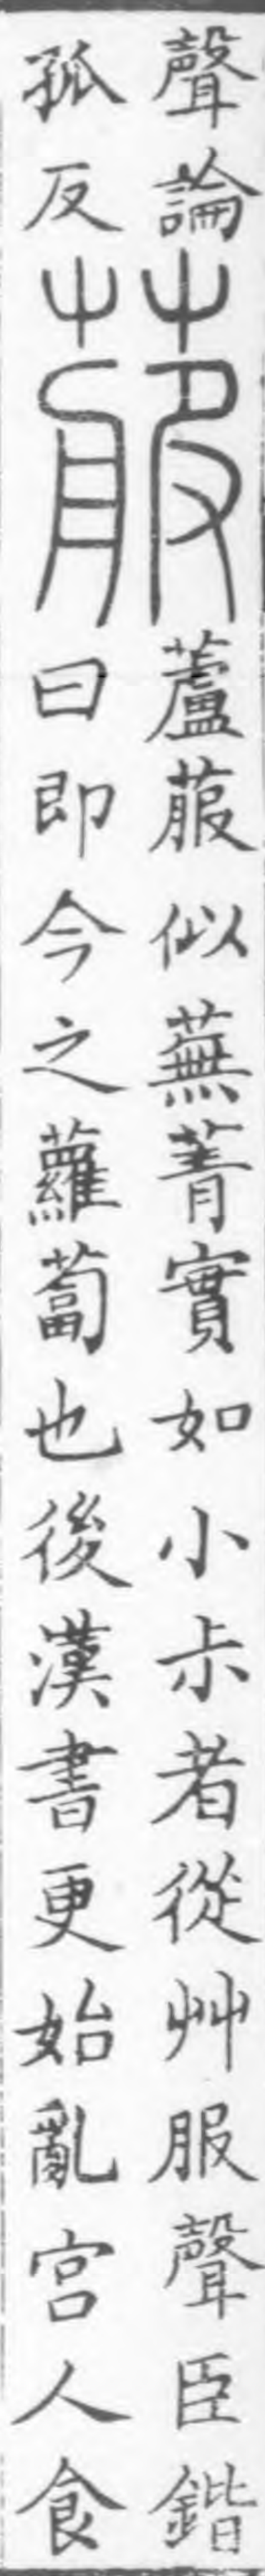 聲論
孤反
菔
蘆菔似蕪菁實如小尗者從艸服聲臣鍇
曰即今之蘿蔔也後漢書更始亂宮人食